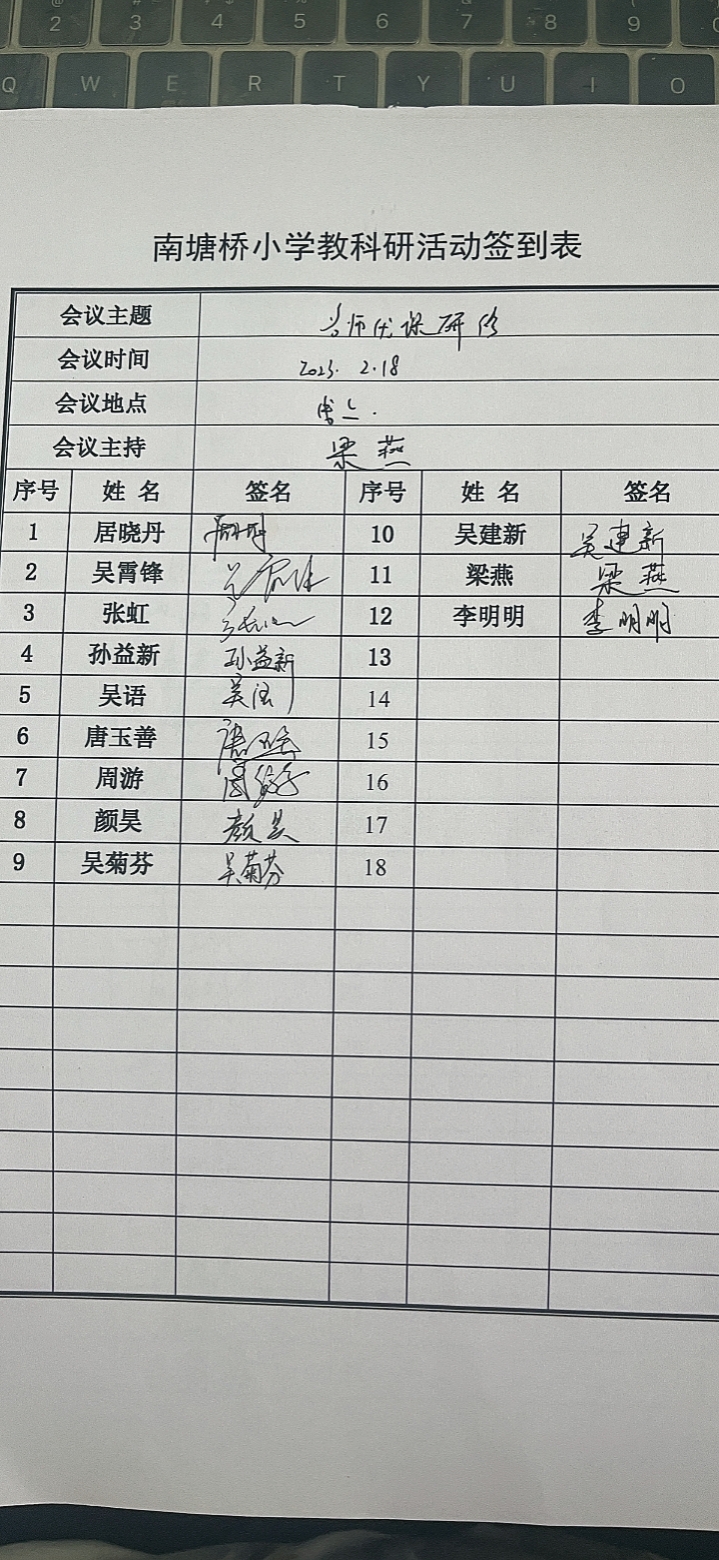 2 3 4 5 6 7 8 9
Q W E R T Y U I O
南塘桥小学教科研活动签到表
会议主题 名师优课研修
会议时间 2023. 2.18
会议地点
会议主持 梁燕
序号 姓名 签名 序号 姓名 签名
1 居晓丹 居晓丹 10 吴建新 吴建新
2 吴霄锋 吴霄锋 11 梁燕 梁燕
3 张虹 张虹 12 李明明 李明明
4 孙益新 孙益新 13
5 吴语 吴语 14
6 唐玉善 唐玉善 15
7 周游 周游 16
8 颜昊 颜昊 17
9 吴菊芬 吴菊芬 18